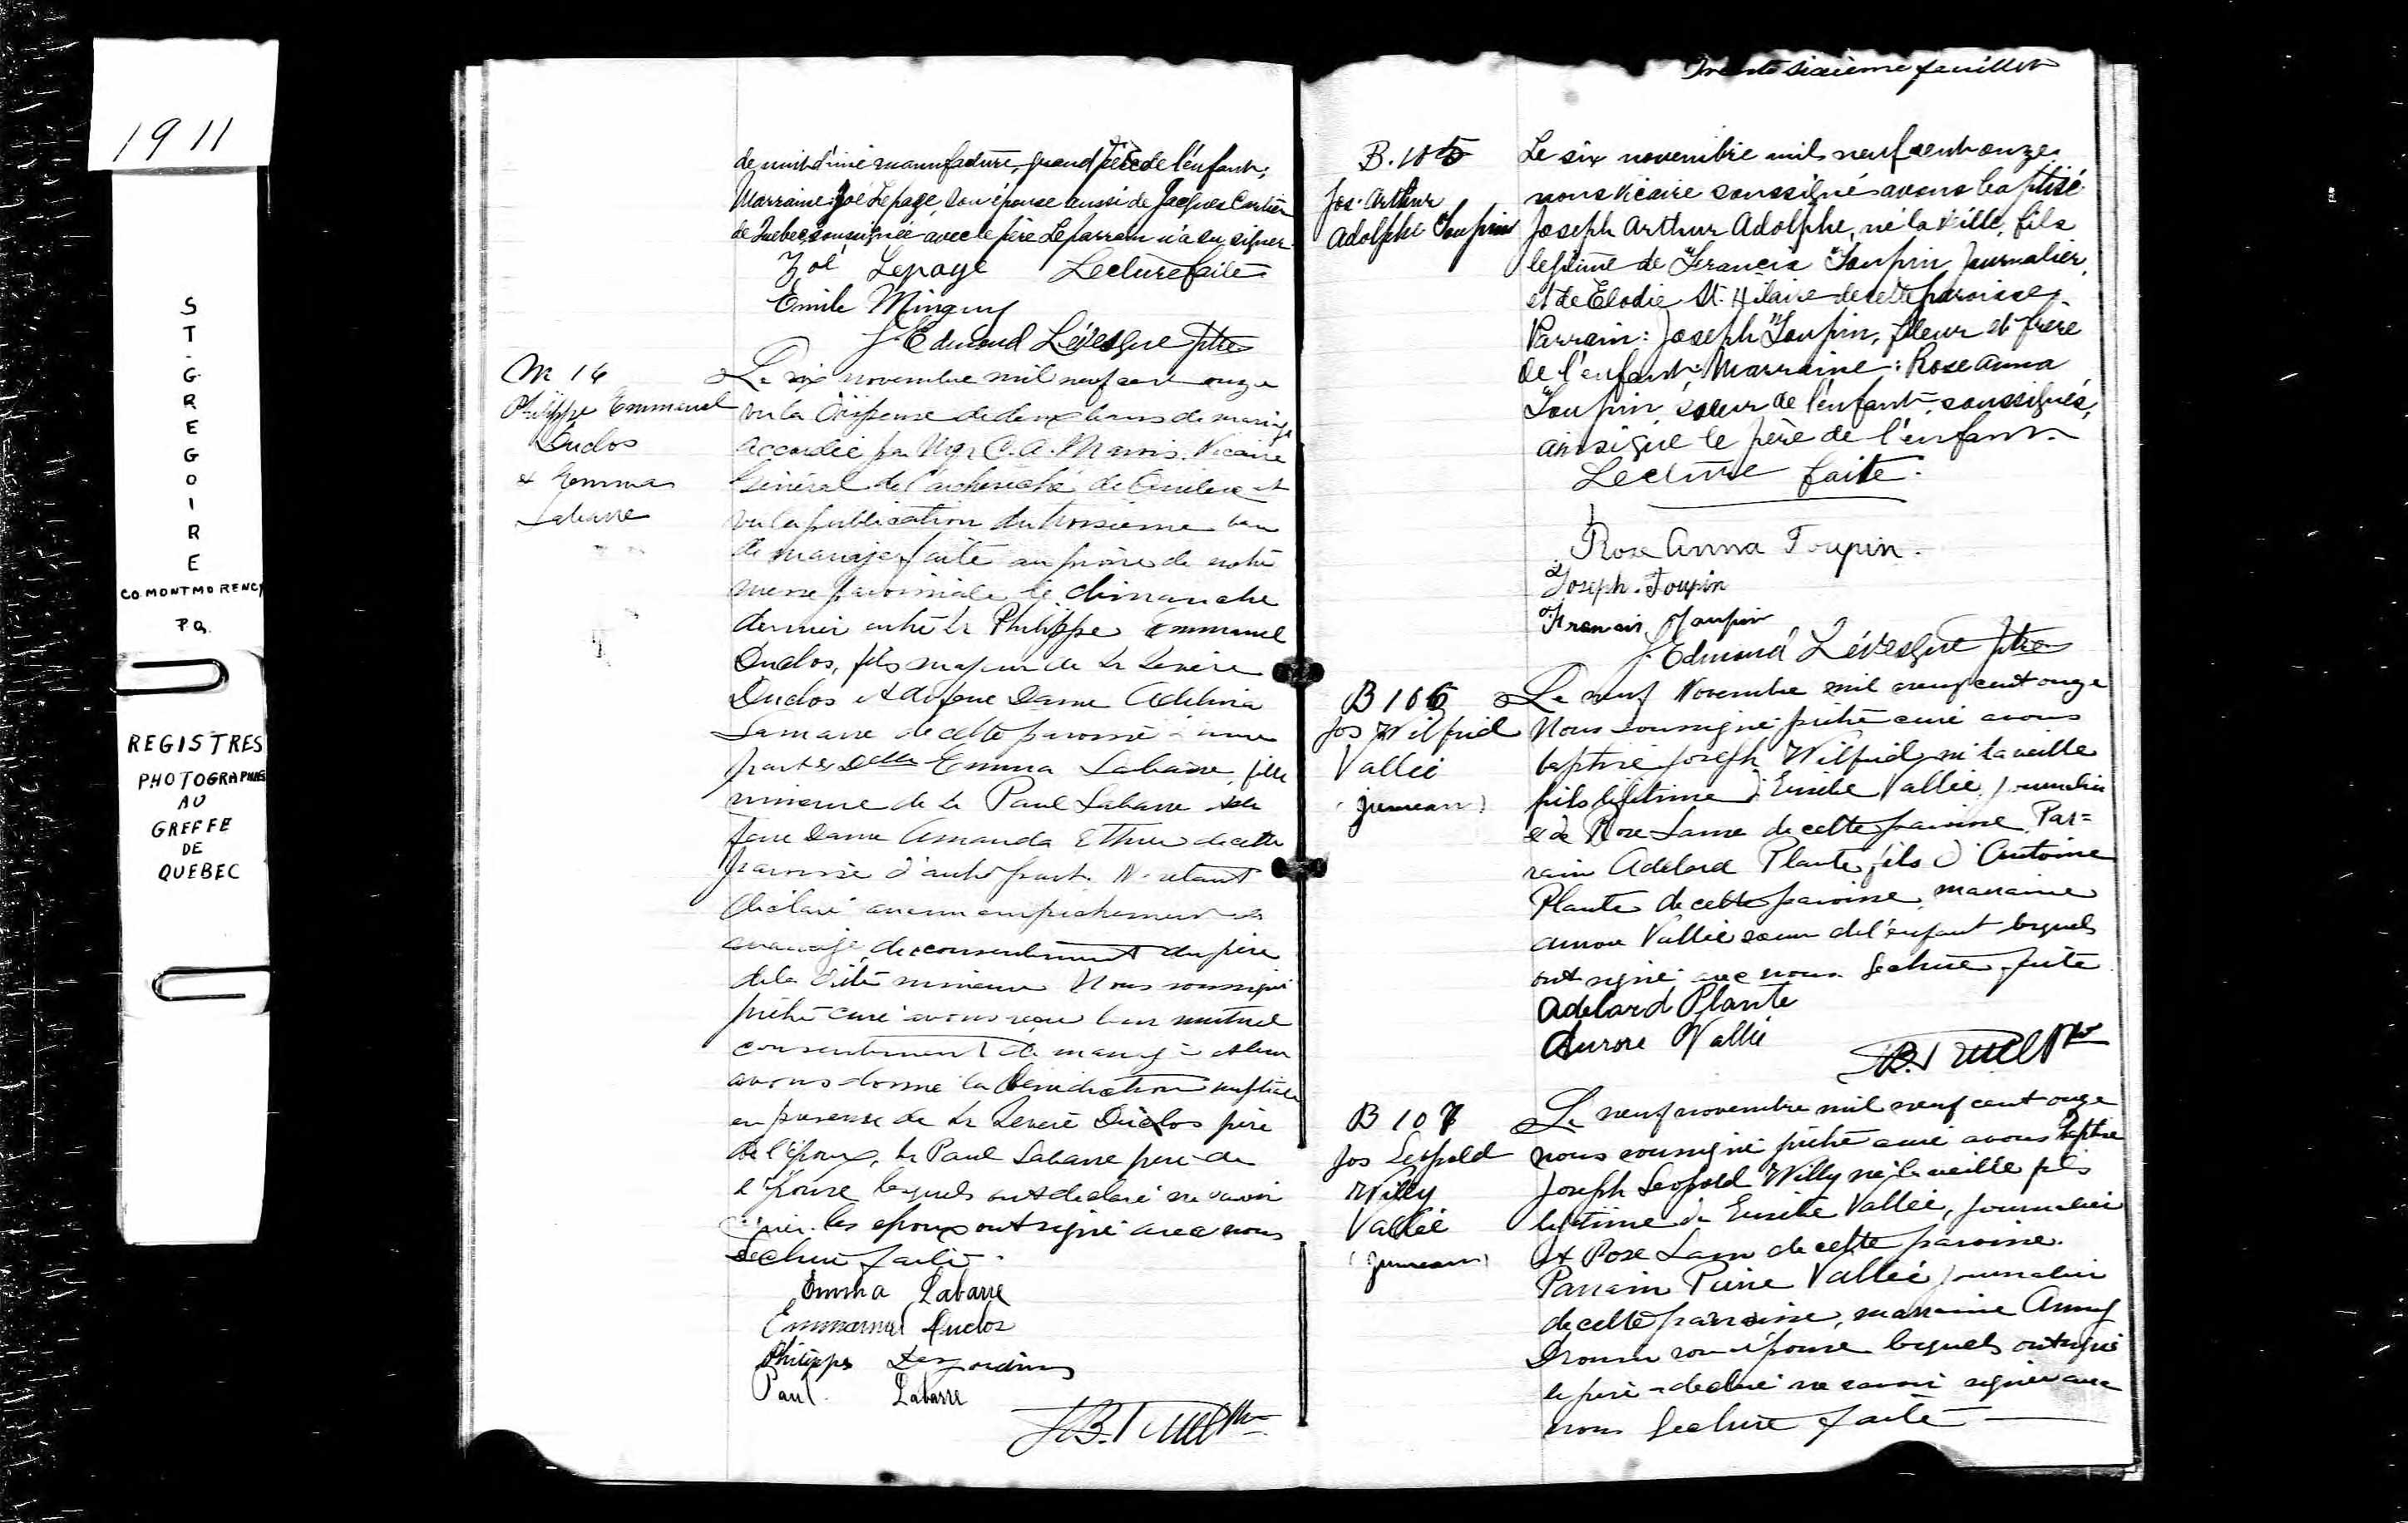 1911
ST-GREGOIRE
CO. MONTMORENCY
P.Q.
REGISTRES
PHOTOGRAPHIES
AU
GREFFE
DE
QUEBEC
de nuit d'une manufacture, grand père de l'enfant;
Marraine: Zoé Lepage, son épouse aussi de Jacques Cartier
de Quebec, soussignée avec le père. Le parrain n'a su signer.
Zoé Lepage Lecture faite
Emile Minguy
J. Edmond Lévesque ptre
M 14
Philippe Emmanuel
Duclos
& Emma
Labarre
Le six novembre mil neuf cent onze
vu la dispense de deux bans de mariage
accordée par Mgr C. A. Marois Vicaire
Général de l'archevêché de Québec et
vu la publication du troisième ban
de mariage faite au prône de notre
messe paroissiale le dimanche
dernier entre Sr Philippe Emmanuel
Duclos, fils majeur de Sr
Duclos et de feue Dame Adelina
Lamarre de cette paroisse d'une
part & Delle Emma Labarre, fille
mineure de Sr Paul Labarre et de
feue Dame Amanda Ethier de cette
paroisse d'autre part. N'étant
déclaré aucun empêchement
mariage, du consentement du père
de la dite mineure Nous soussigné
prêtre curé avons reçu leur mutuel
consentement de mariage et leur
avons donné la bénédiction nuptiale
en présence de Sr Duclos père
de l'époux, Sr Paul Labarre père de
l'épouse lesquels ont déclaré ne savoir
signer. les époux ont signé avec nous
Lecture faite.
Emma Labarre
Emmanuel Duclos
Philippe Desjardins
Paul Labarre
J. B. Ruel Ptre
Trente sixième feuillet
B. 105
Jos. Arthur
Adolphe Toupin
Le six novembre mil neuf cent onze
nous vicaire soussigné avons baptisé
Joseph Arthur Adolphe, né la veille, fils
légitime de Francis Toupin, journalier,
et de Elodie St. Hilaire de cette paroisse.
Parrain: Joseph Toupin, fileur et frère
de l'enfant. Marraine: Rose Anna
Toupin, sœur de l'enfant, soussignés,
ainsi que le père de l'enfant.
Lecture faite.
Rose Anna Toupin.
Joseph. Toupin
Francis Toupin
J. Edmond Lévesque ptre
B 106
Jos Wilfrid
Vallée
(jumeau)
Le neuf Novembre mil neuf cent onze
Nous soussigné prêtre curé avons
baptisé Joseph Wilfrid né la veille
fils légitime d'Emile Vallée, journalier
& de Rose Lame de cette paroisse. Par=
rain Adelard Plante, fils d'Antoine
Plante de cette paroisse, marraine
Aurore Vallée sœur de l'enfant lesquels
ont signé avec nous. Lecture faite
Adelard Plante
Aurore Vallée
J. B. Ruel Ptre
B 107
Jos Leopold
Willy
Vallée
(jumeau)
Le neuf novembre mil neuf cent onze
nous soussigné prêtre curé avons baptisé
Joseph Leopold Willy né la veille fils
légitime de Emile Vallée, journalier
& Rose Lame de cette paroisse.
Parrain Pierre Vallée journalier
de cette paroisse, marraine Anny
Drouin son épouse lesquels ont signé
le père a déclaré ne savoir signer avec
nous Lecture faite